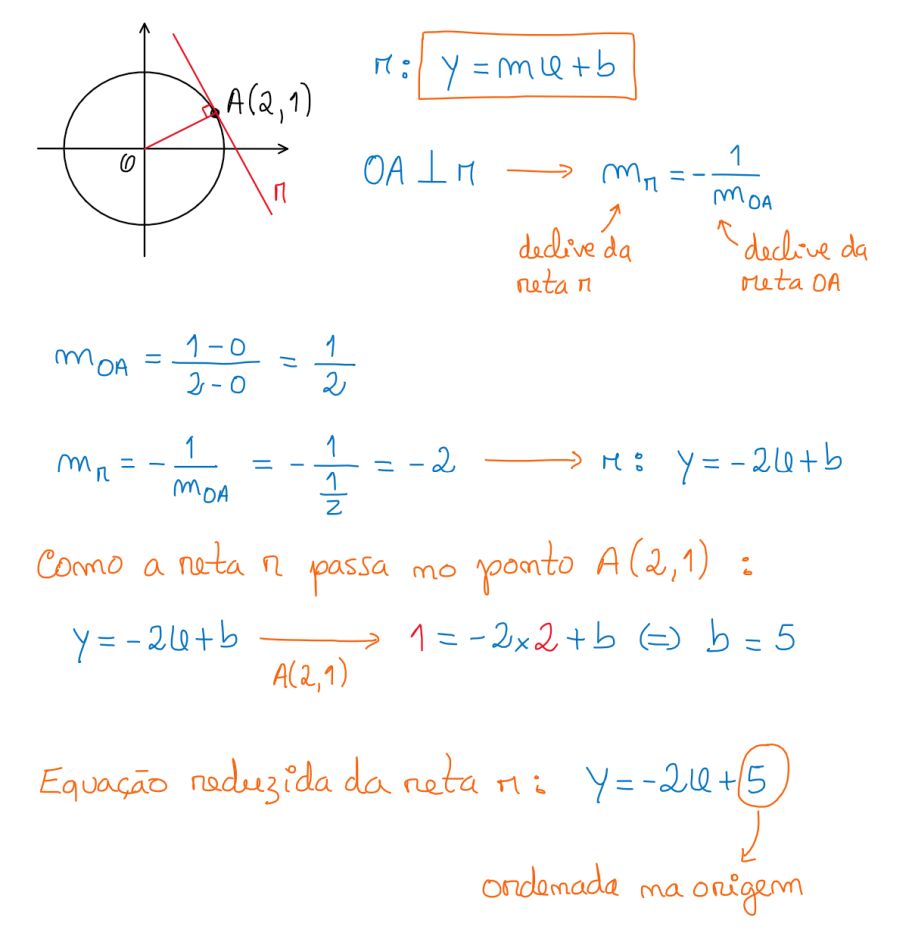 A(2,1)
O
r
r: y = mx + b
OA ⊥ r → m_r = - 1/m_OA
declive da reta r
declive da reta OA
m_OA = (1-0)/(2-0) = 1/2
m_r = - 1/m_OA = - 1/(1/2) = -2 → r: y = -2x + b
Como a reta r passa no ponto A(2,1) :
y = -2x + b → 1 = -2×2 + b ⇔ b = 5
A(2,1)
Equação reduzida da reta r: y = -2x + 5
ordenada na origem